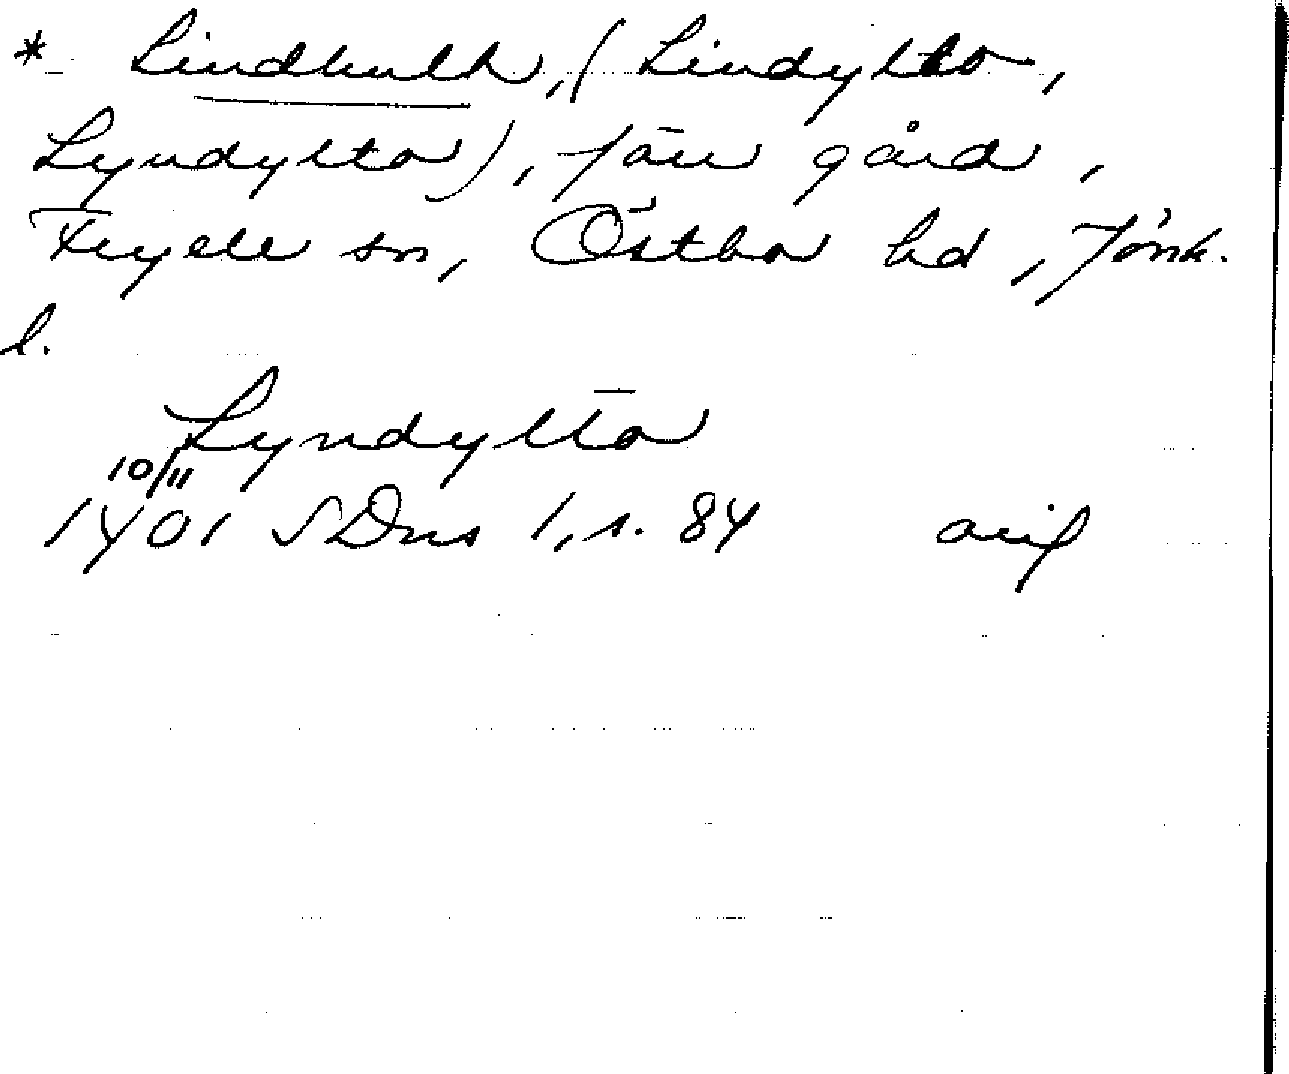 * Lindhult, (Lindylto,
Lyndylto), förr gård,
Fryele sn, Östbo hd, Jönk.
l.
Lyndylto
10/11
1401 SDns 1, s. 84 avif